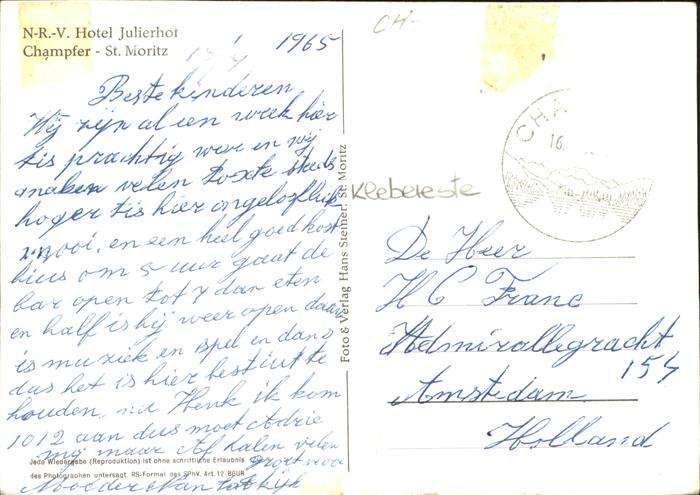 N-R.-V. Hotel Julierhof
Champfer - St. Moritz
1965
Beste kinderen
Wij zijn al een week hier
tis prachtig weer en wij
maken velen toste steeds
hoger tis hier ongelooflijk
mooi, en een heel goed kost
huis om 5 uur gaat de
bar open tot 7 dan eten
en half is hij weer open daar
is muziek en spel en dans
dus het is hier best uit te
houden, nu Henk ik kom
10 12 aan dus moet Adrie
mij maar Af halen velen
groet
Moeder
Jede Wiedergabe (Reproduktion) ist ohne schriftliche Erlaubnis
des Photographen untersagt. RS-Formel des SPhV. Art. 12 BGUR
Foto & Verlag Hans Steiner, St. Moritz
CH-
Klebereste
CHA
16.
De Heer
H C Franc
Admirallegracht
154
Amsterdam
Holland